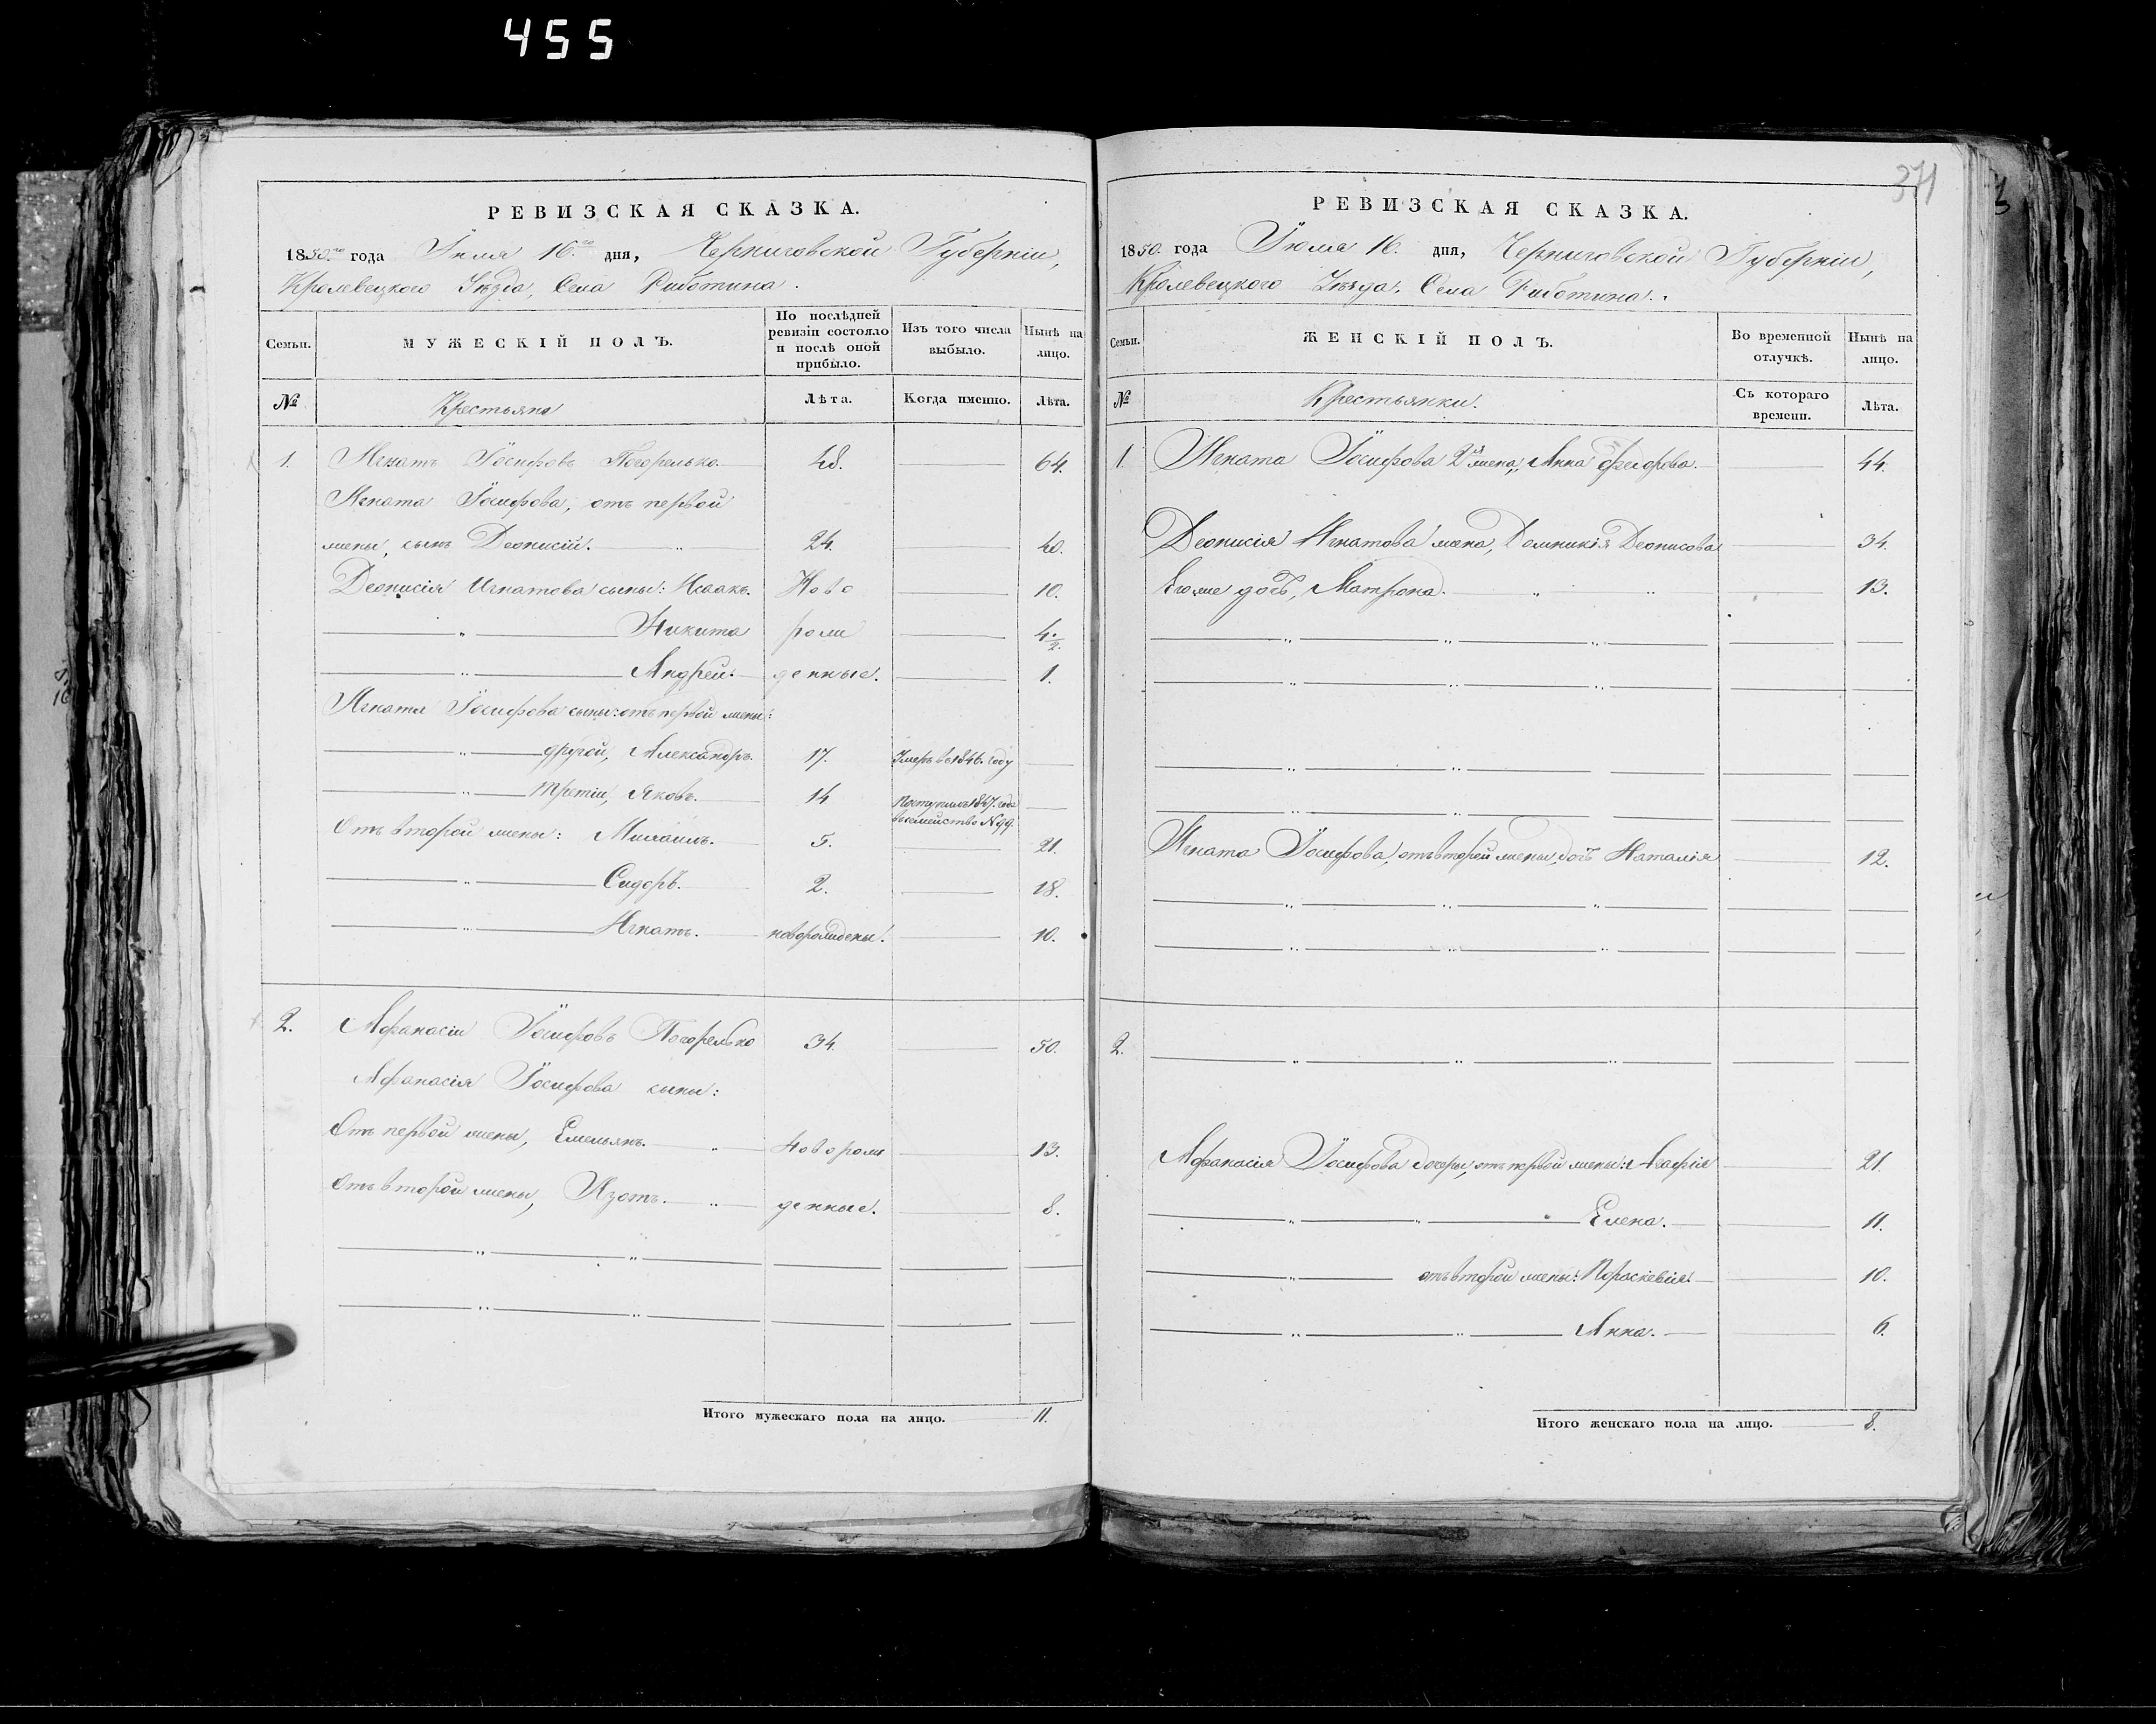 455
РЕВИЗСКАЯ СКАЗКА.
1850го года Июля 16го дня, Черниговской Губерніи,
Кролевецкого Уѣзда, Села Риботина.
Семьи.
МУЖЕСКІЙ ПОЛЪ.
По послѣдней ревизіи состояло и послѣ оной прибыло.
Изъ того числа выбыло.
Нынѣ на лицо.
№
Крестьяне
Лѣта.
Когда именно.
Лѣта.
1. Игнатъ Іосифовъ Погорелько. 48. 64.
Игната Іосифова, отъ первой
жены, сынъ Деонисій. 24. 40.
Деонисія Игнатова сыны: Исаакъ. Ново 10.
Никита рож 4 1/2.
Андрей. денные. 1.
Игната Іосифова сыны: отъ первой жены:
другой, Александръ. 17. Умеръ въ 1846. году
третій, Яковъ. 14 Поступилъ 1847. года
въ семейство № 99.
Отъ второй жены: Михаилъ. 5. 21.
Сидоръ. 2. 18.
Игнатъ. новорожденный. 10.
2. Афанасій Іосифовъ Погорелько 34. 50.
Афанасія Іосифова сыны:
Отъ первой жены, Емельянъ. Новорож 13.
Отъ второй жены, Изотъ. денные. 8.
Итого мужескаго пола на лицо. 11.
371
РЕВИЗСКАЯ СКАЗКА.
1850. года Іюля 16. дня, Черниговской Губерніи,
Кролевецкого Уѣзда. Села Риботина.
Семьи.
ЖЕНСКІЙ ПОЛЪ.
Во временной отлучкѣ.
Нынѣ на лицо.
№
Крестьянки.
Съ котораго времени.
Лѣта.
1. Игната Іосифова 2я жена, Анна Федорова. 44.
Деонисія Игнатова жена, Домникія Деонисова 34.
Его же дочь, Матрона. 13.
Игната Іосифова, отъ второй жены, дочь Наталія 12.
2.
Афанасія Іосифова дочеры, отъ первой жены: Агафія 21.
Елена. 11.
отъ второй жены: Параскевія. 10.
Анна. 6.
Итого женскаго пола на лицо. 8.